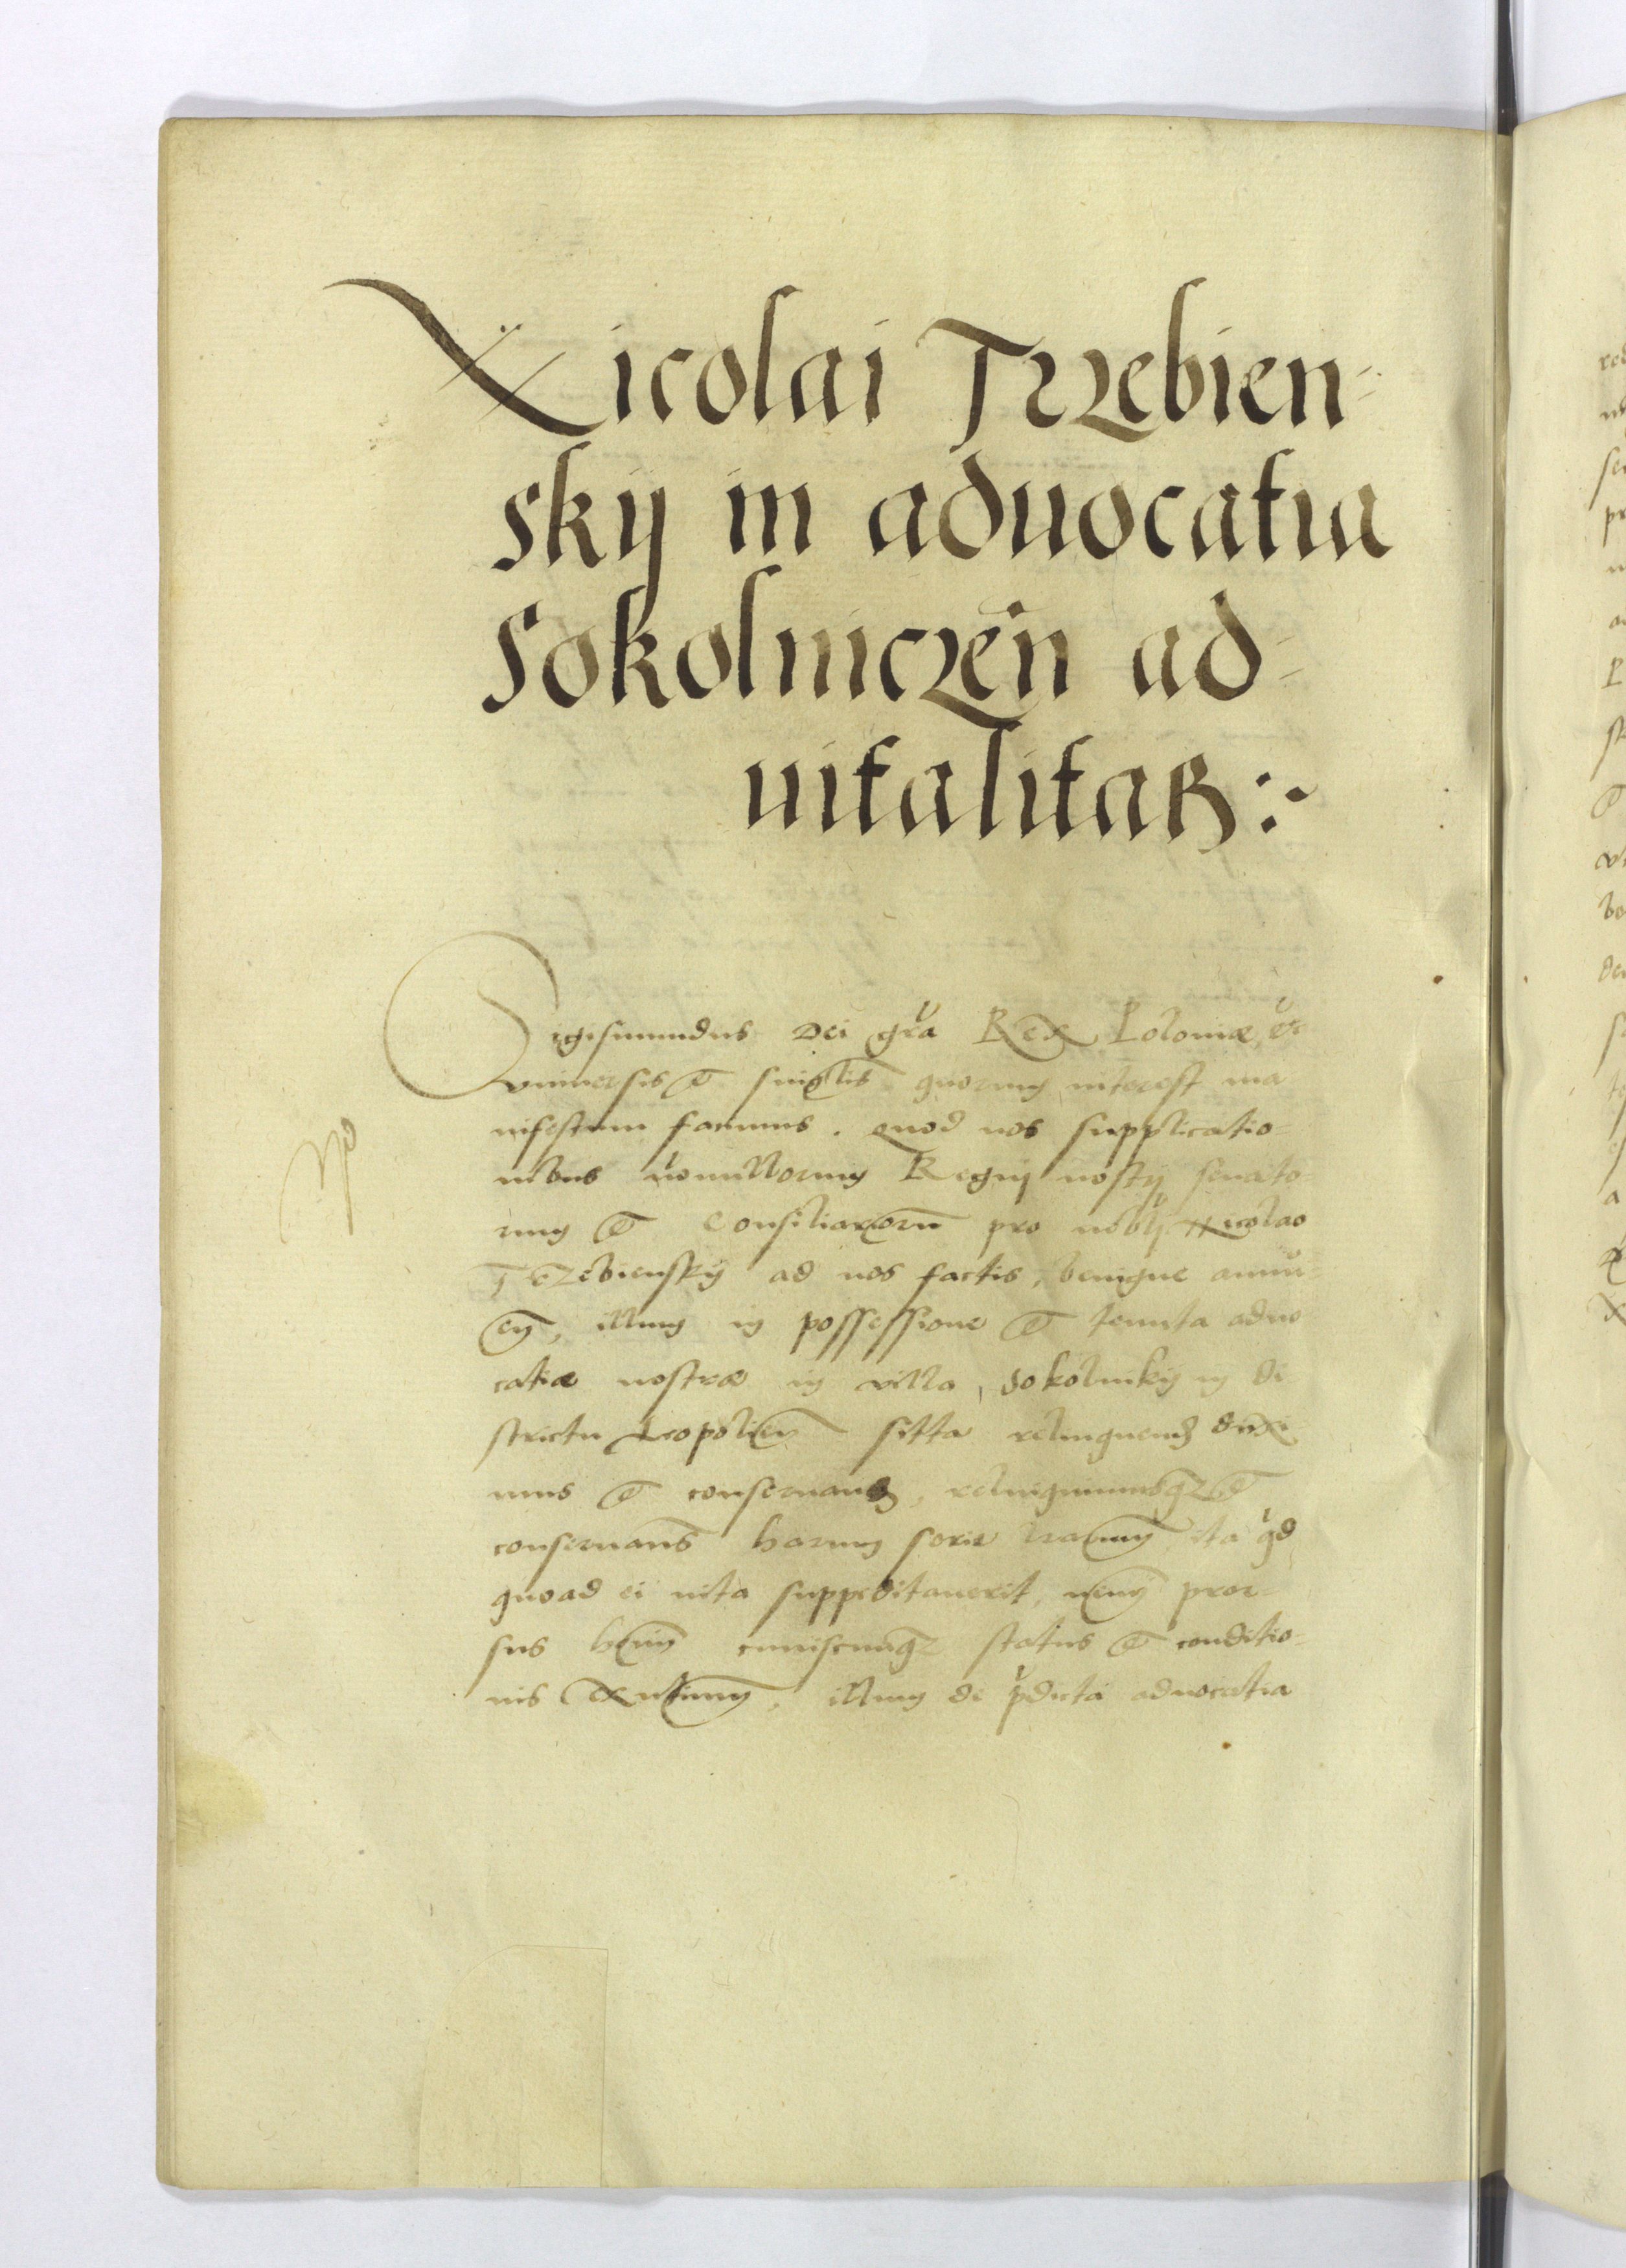 Nicolai Trzebien-
skij in aduocatia
Sokolniczen ad-
uitalitas :-
Sigismundus Dei gra Rex Poloniæ, etc
vniuersis et singlis quorum interest ma
nifestum facimus. Quod nos supplicatio-
nibus nonnullorum Regnij nostrj senato-
rum et Consiliariorū pro nobli Nicolao
Trzebienskij ad nos factis, benigne annu-
en, illum in possessione et tenuta aduo
catiæ nostræ in villa, Sokolnikij in di
strictu Leopolien sitta relinquend duxi
mus et conseruand, relinquimusq et
conseruams harum serie lrarum, ita qd
quoad ei uita suppeditauerit, nemi pror-
sus hoim cuiuscunq status et conditio-
nis existimus, illum de pdicta aduocatia